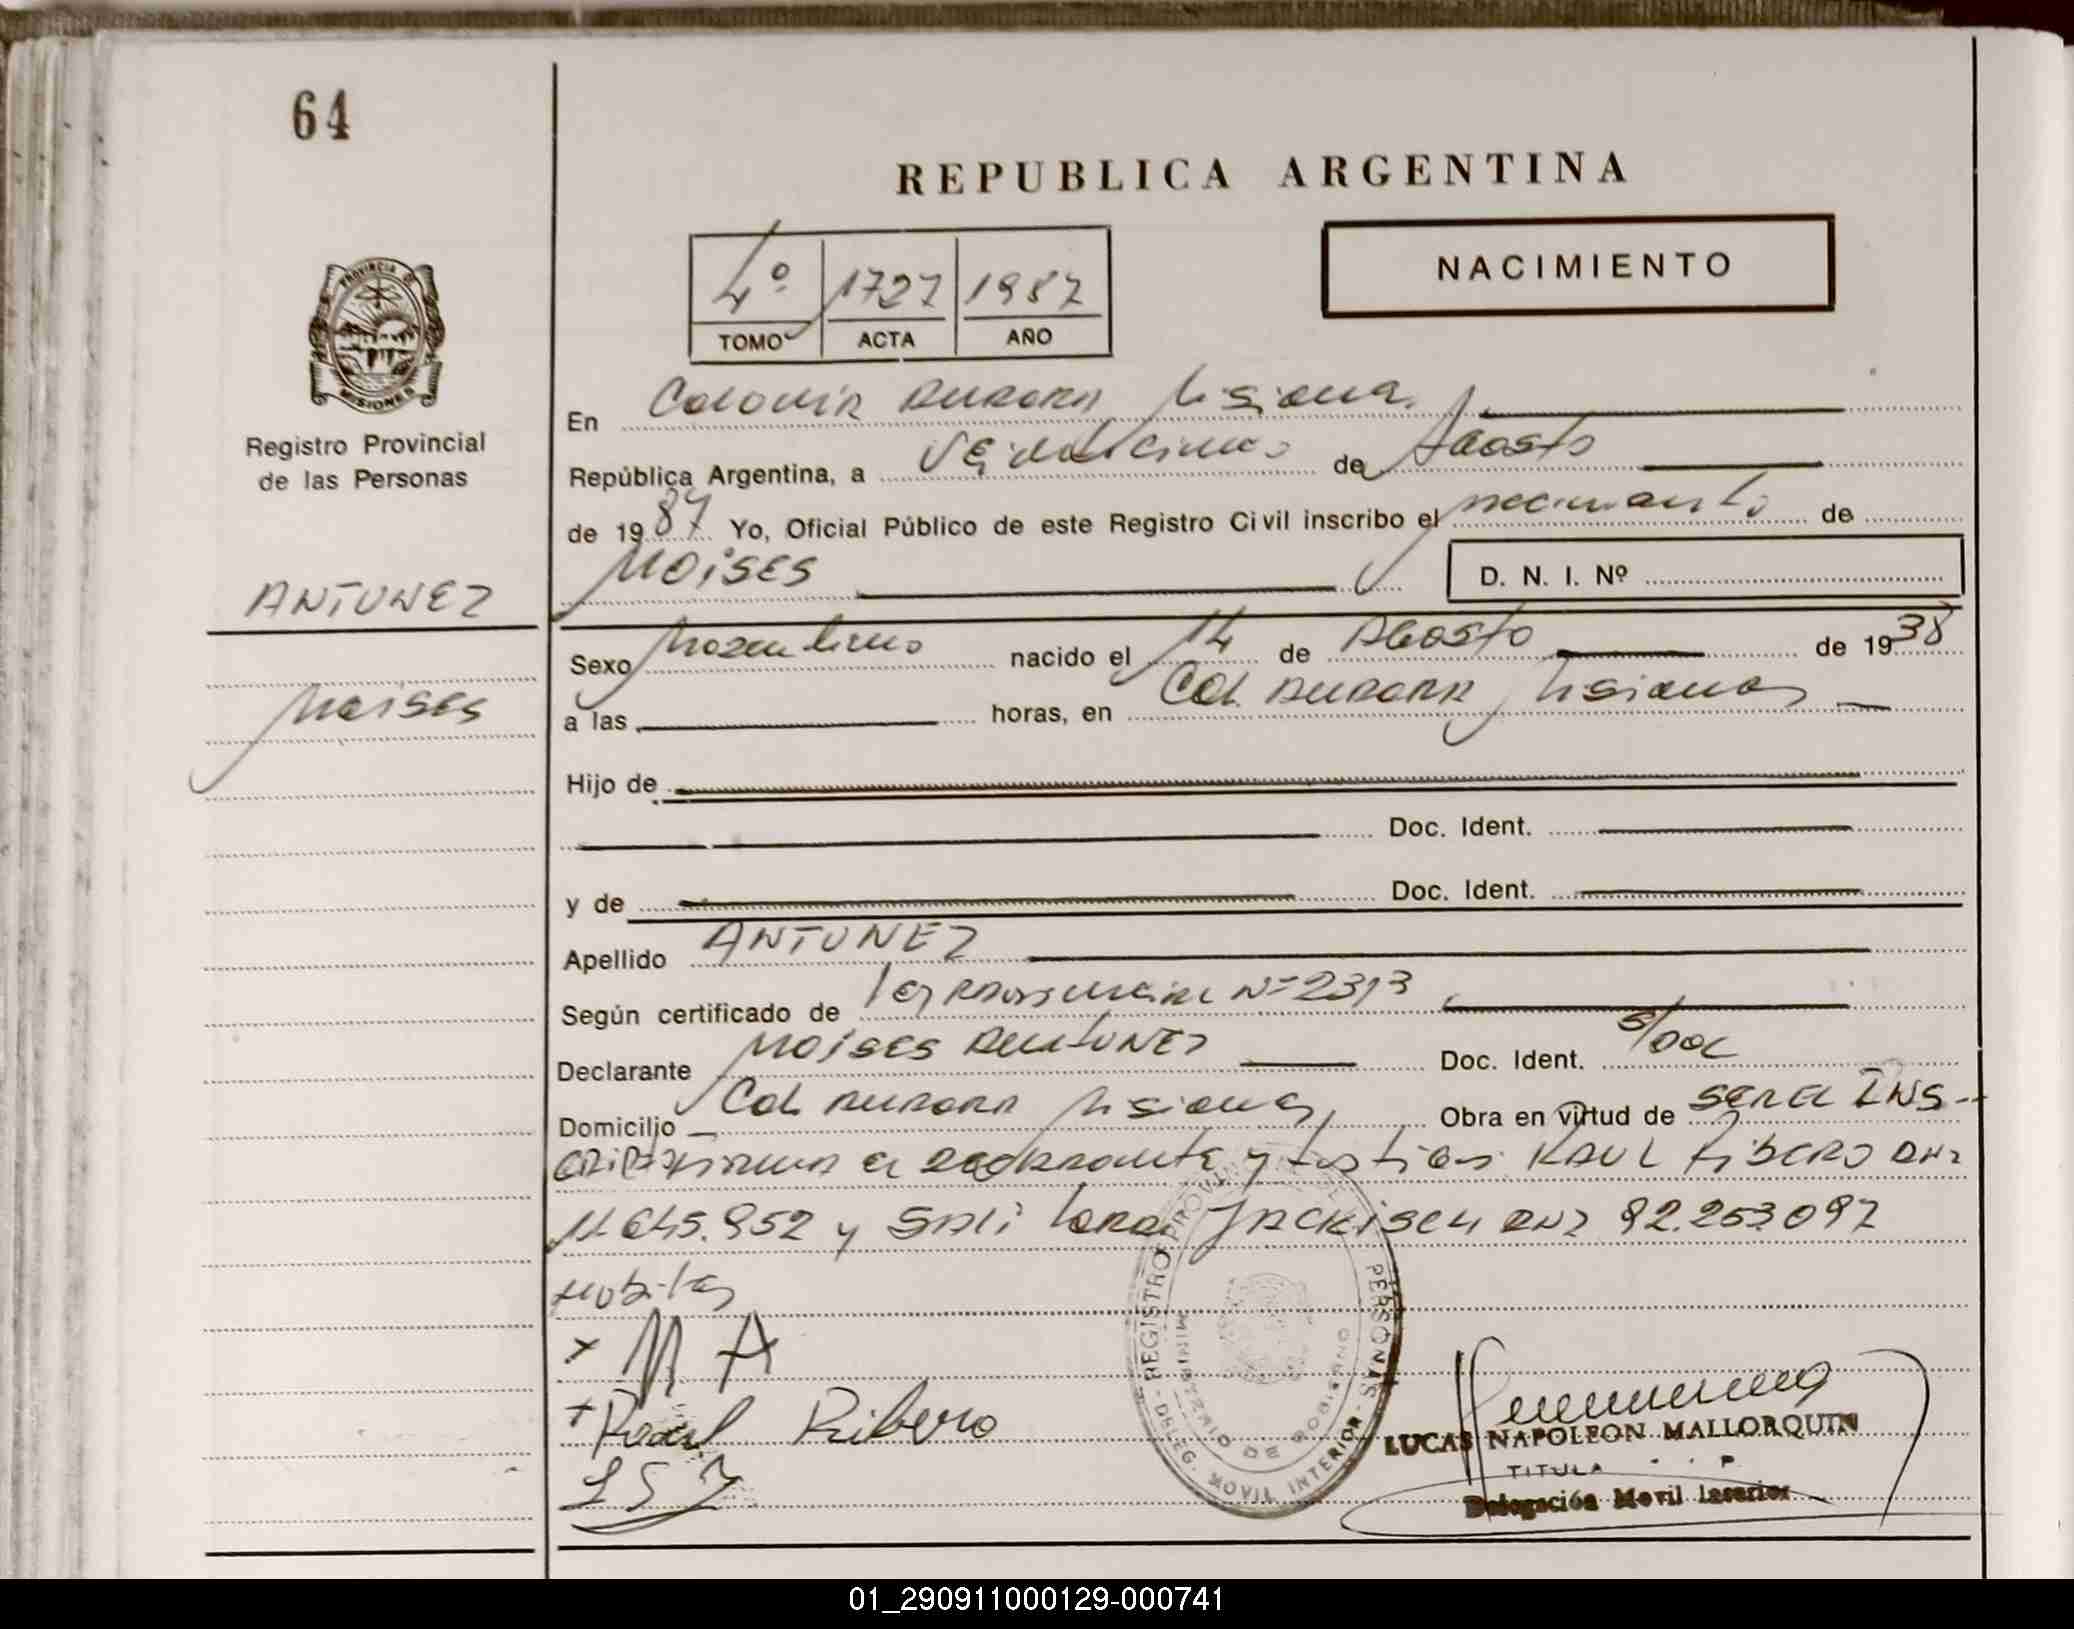 64
REPUBLICA ARGENTINA
4º 1727 1987
TOMO ACTA AÑO
NACIMIENTO
PROVINCIA DE MISIONES
Registro Provincial
de las Personas
ANTUNEZ
Moises
En Colonia Aurora Misiones
República Argentina, a veinticinco de Agosto
de 1987 Yo, Oficial Público de este Registro Civil inscribo el nacimiento de
Moises D. N. I. Nº
Sexo Masculino nacido el 14 de Agosto de 1938
a las horas, en Col. Aurora Misiones
Hijo de
Doc. Ident.
y de Doc. Ident.
Apellido ANTUNEZ
Según certificado de Ley Provincial Nº 2313
Declarante Moises Antunez Doc. Ident. s/Doc
Domicilio Col Aurora Misiones Obra en virtud de ser el ins-
firman el declarante y testigos Raul Ribero DNI
y Jackisch DNI 92.253.097
habiles
x M A
+ Raul Ribero
L S J
REGISTRO PROVINCIAL DE LAS PERSONAS
MINISTERIO DE GOBIERNO
DELEG. MOVIL INTERIOR
LUCAS NAPOLEON MALLORQUIN
TITULA
Delegación Movil Interior
01_290911000129-000741